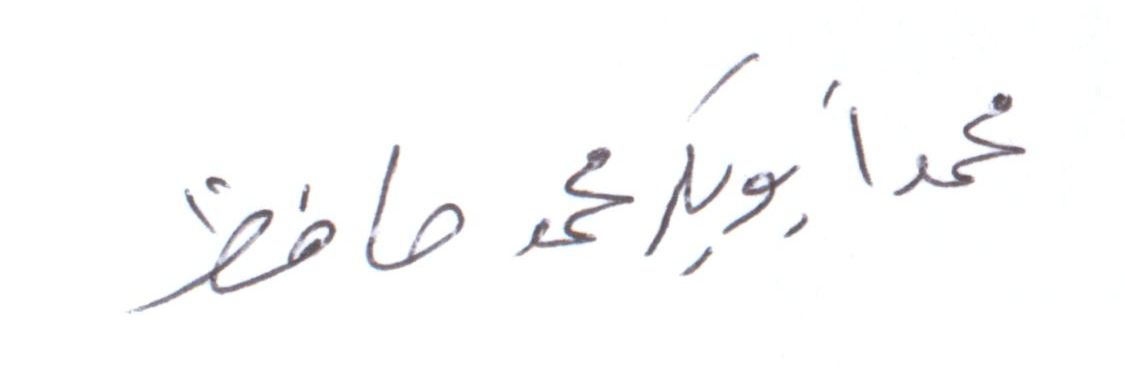 محمد أبوبكر محمد حافظ